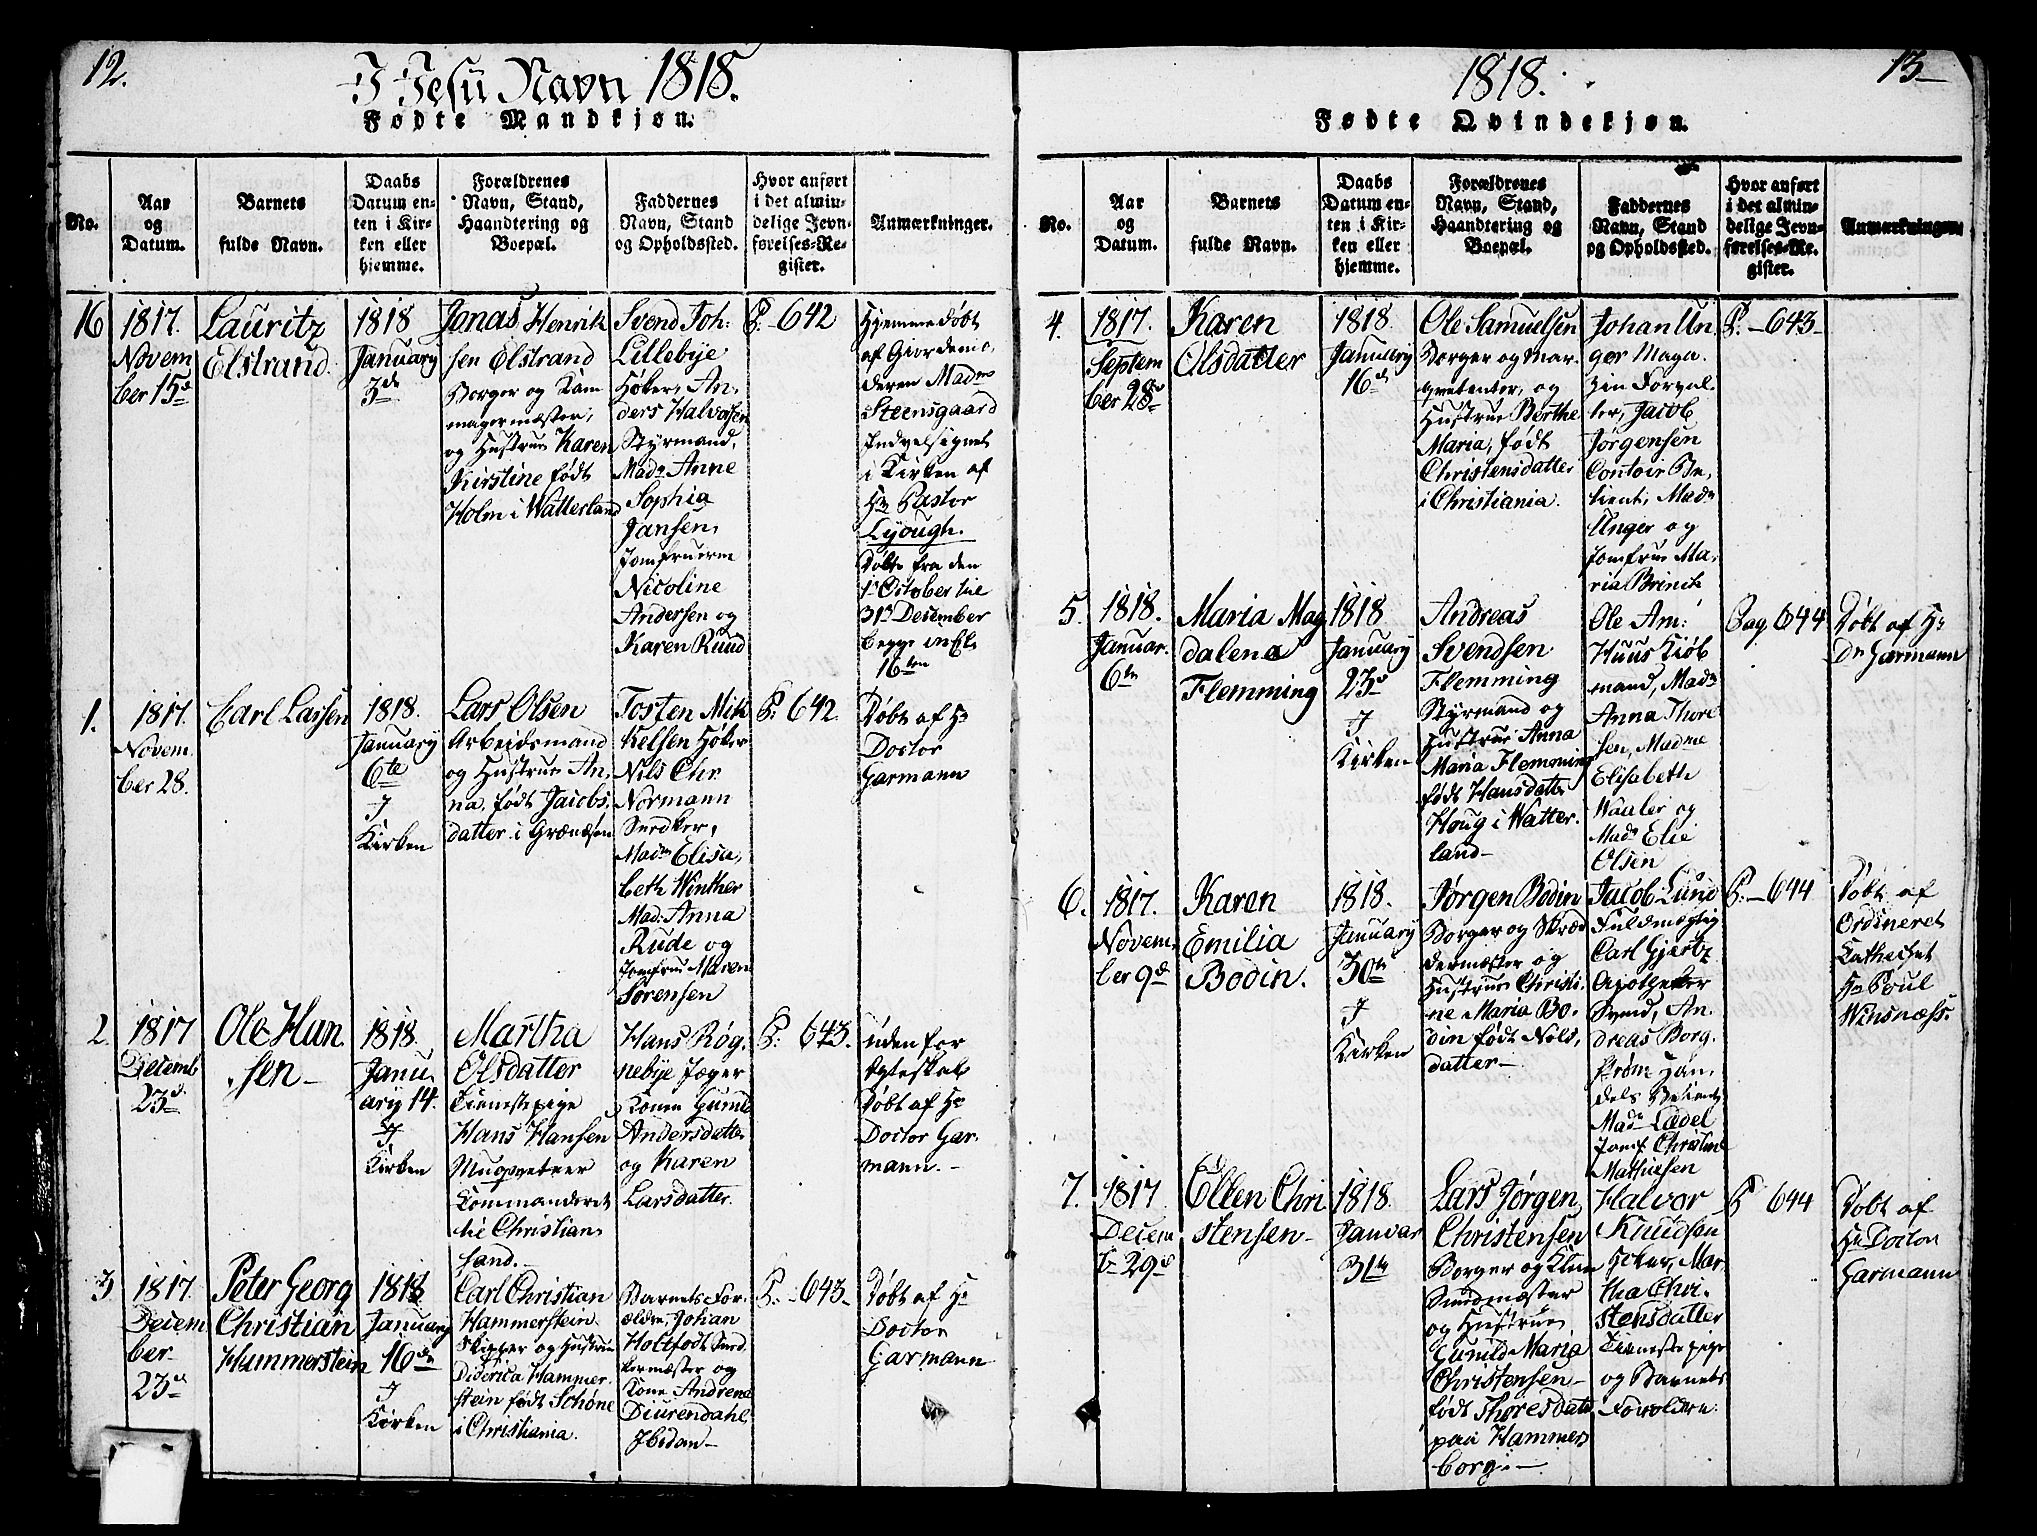 12.
I Jesu Navn 1818.
Fødte Mandkjøn.
No.
Aar
og
Datum.
Barnets
fulde Navn.
Daabs
Datum en-
ten i Kir-
ken eller
hjemme.
Forældrenes
Navn, Stand,
Haandtering og
Boepæl.
Faddernes
Navn, Stand
og Opholdsted.
Hvor anført
i det almin-
delige Jevn-
førelses-Re-
gister.
Anmærkninger.
16
1817.
Novem
ber 15d
Lauritz
Elstrand.
1818
January
3de
Jonas Henrik
sen Elstrand
Borger og Kam
magermester,
og Hustrue Karen
Kirstine født
Holm i Watterland
Svend Joh:
Lillebye
Høker, An,
ders Halvorsen
Styrmand,
Madm Anne
Sophia
Jansen,
Jomfruerne
Nicoline
Andersen og
Karen Ruud
P. - 642
Hjemmedøbt
af Giordemo,
deren Madme
Steensgaard
Indvelsignet
i Kirken af
Hr Pastor
Lyough.
Døbte fra den
1st October til
31st Desember
begge inkl.
16ten
1.
1817.
Novem.
ber 28.
Carl Larsen
1818.
January
6te
I
Kirken
Lars Olsen
Arbeidsmand
og Hustrue An,
na, født Jacobs,
datter i Grændsen
Tosten Mik
kelsen Høker
Nils Chr
Normann
Snedker,
Madm Elisa,
beth Winther
Mad: Anna
Rude og
Jomfrue Maren
Sørensen
P. 642.
Døbt af Hr
Doctor
Garmann
2.
1817
Decemb
23d
Ole Han
sen -
1818.
Janu
ary 14.
I
Kirken
Martha
Olsdatter
Tienestepige
Hans Hansen
Musqveteer
Commanderet
til Christian,
sand.
Hans Røg,
nebye Jæger
Konen Gunild
Andersdatter
og Karen
Larsdatter.
P. 643.
uden for
Ægteskab
Døbt af Hr
Doctor Gar,
mann. -
3
1817.
Decem
ber
23d
Peter Georg
Christian
Hammerstein
1818
January
16de
I
Kirken
Carl Christian
Hammerstein
Skipper og Hustrue
Diderica Hammer,
stein født Schöne
i Christiania.
Barnets For,
ældre, Johan
Holtfodt Sned
kermester og
Kone Andrena
Diurendahl
Ibidem -
P. - 643 -
Døbt af Hr
Doctor
Garmann
1818.
13 -
Fødte Qvindekjøn.
No.
Aar
og
Datum.
Barnets
fulde Navn.
Daabs
Datum en-
ten i Kir-
ken eller
hjemme.
Forældrenes
Navn, Stand,
Haandtering og
Boepæl.
Faddernes
Navn, Stand
og Opholdsted.
Hvor anført
i det almin-
delige Jevn-
førelses-Re-
gister.
Anmærkninger.
4.
1817.
Septem
ber 28
Karen
Olsdatter
1818.
January
16d
Ole Samuelsen
Borger og Mar,
qvetenter, og
Hustrue Berthe
Maria, født
Christensdatter
i Christiania.
Johan Un
ger Maga
zin Forval,
ter, Jacob
Jørgensen
Contoir Be,
tient, Madm
Unger og
Jomfrue Ma,
ria Brinch
P. - 643 -
5.
1818.
Januar.
6te
Maria Mag
dalena
Flemming
1818
January
23d
I
Kirken
Andreas
Svendsen
Flemming
Styrmand og
Hustrue Anna
Maria Flemming
født Hansdatter
Houg i Watter,
land -
Ole Am:
Huus Kiöb
mand, Madm
Anna Thore
sen, Madme
Elisabeth
Waaler og
Mads Elie
Olsen
Pag 644
Døbt af Hr
Dr Garmann
6.
1817.
Novem
ber 9d
Karen
Emilia
Bodin.
1818.
January
30te
I
Kirken
Jørgen Bodin
Borger og Skræd
dermester og
Hustrue Christi,
ne Maria Bo,
din født Nils,
datter -
Jacob Lund
Fuldmægtig
Carl Gjertz
Apotheker
Svend, An,
dreas Borg,
strøm Han,
dels Betient
Madm Lædel
Jomf. Christine
Mathiesen
P. - 644
Døbt af
Ordineret
Kathechet
Hr Poul
Winsnæss.
7.
1817
Decem
br 29d
Ellen Chri
stensen -
1818.
Januar
31te
Lars Jørgen
Christensen
Borger og Klein
Smedmester
og Hustrue
Gunild Maria
Christensen -
født Thoresdatter
paa Hammers
borg. -
Halvor
Knudsen
Høker, Mar
tha Chri,
stensdatter
Tienestepige
og Barnets
Forældre.
P 644
Døbt af
Hr Doctor
Garmann